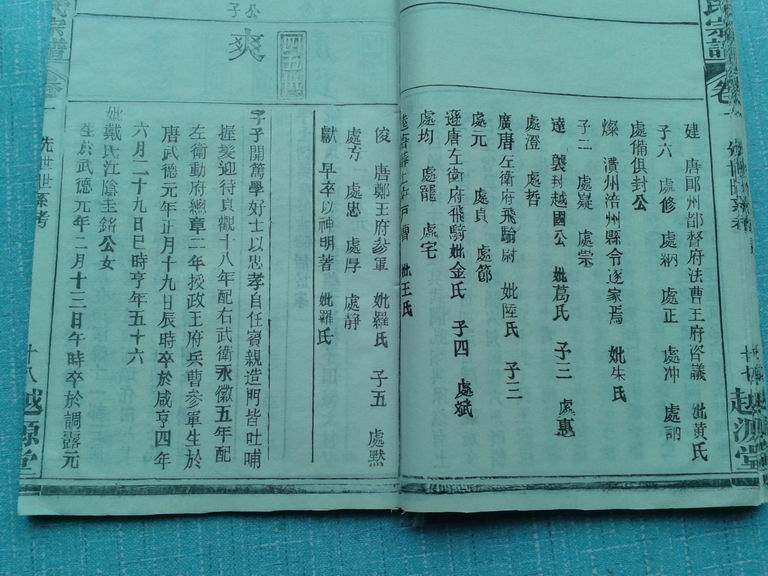 氏宗譜
卷一
先世世系考
十七
越源堂
建 唐鄖州都督府法曹王府咨議 妣黃氏
子六 處修 處納 處正 處冲 處訥
處備俱封公
燦 濆州涪州縣令逐家焉 妣朱氏
子二 處疑 處崇
達 襲封越國公 妣葛氏 子三 處惠
處澄 處哲
廣唐左衛府飛騎尉 妣陸氏 子三
處元 處貞 處節
遜唐左衛府飛騎妣金氏 子四 處斌
處均 處寵 處宅
妣王氏
俊 唐鄭王府參軍 妣羅氏 子五 處默
處方 處忠 處厚 處靜
獻 早卒以神明著 妣羅氏
四五世
公子
爽
字子開篤學好士以忠孝自任賓親造門皆吐哺
握髮迎待貞觀十八年配右武衛永徽五年配
左衛勳府總章二年授政王府兵曹參軍生於
唐武德元年正月十九日辰時卒於咸亨四年
六月二十九日巳時亨年五十六
妣戴氏江陰圭銘公女
生於武德元年二月十三日午時卒於調露元
氏宗譜
卷一
先世世系考
十八
越源堂